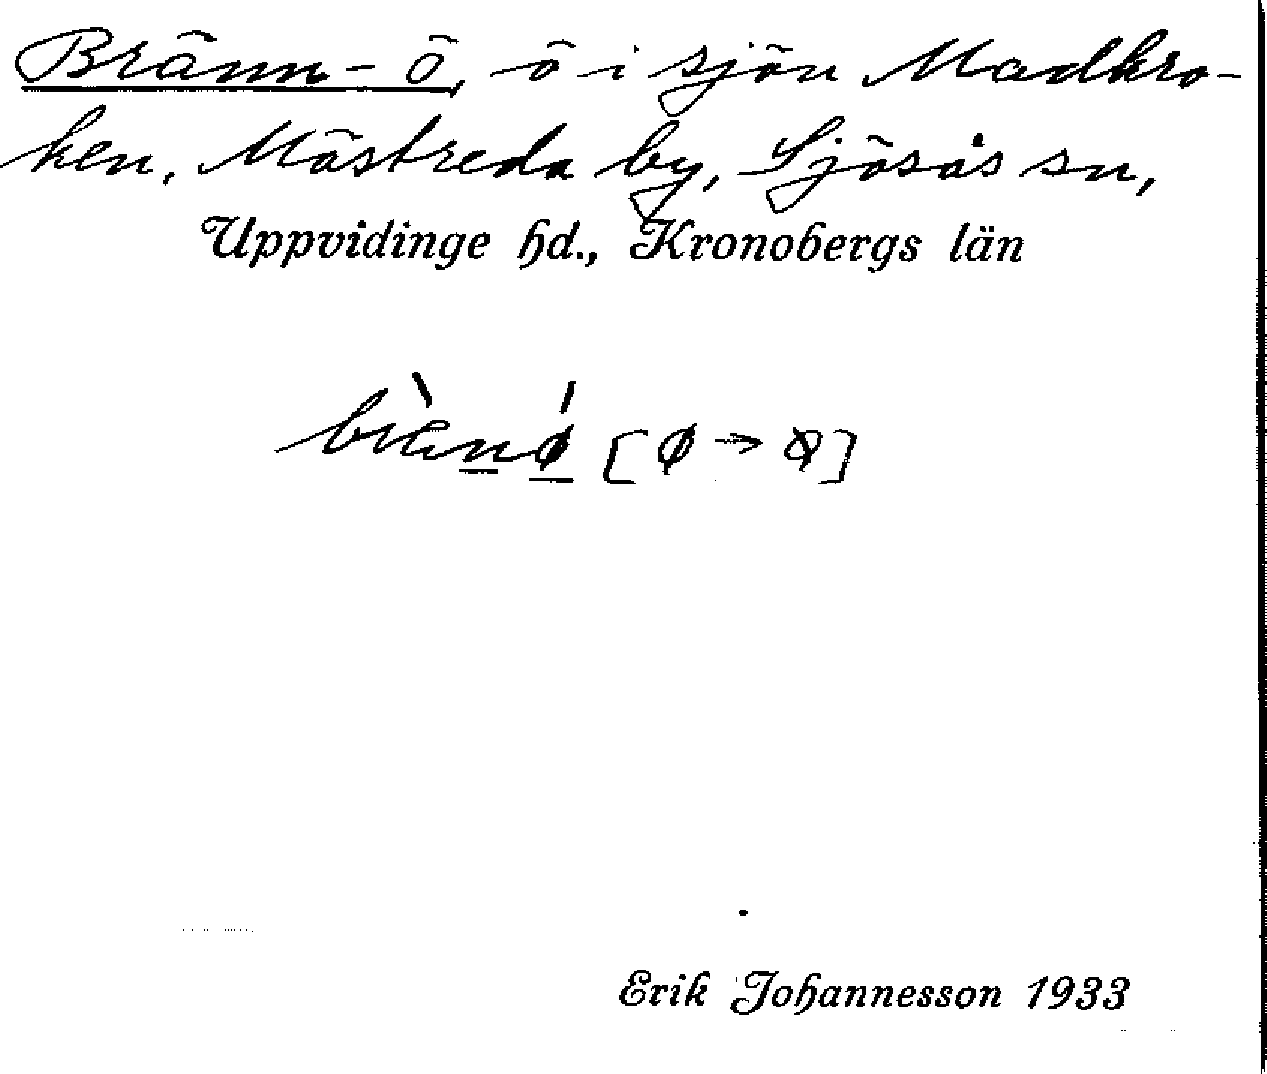 Bränn-ö, ö i sjön Madkro-
ken, Möstreda by, Sjösås sn,
Uppvidinge hd., Kronobergs län
[ø → ]
Erik Johannesson 1933